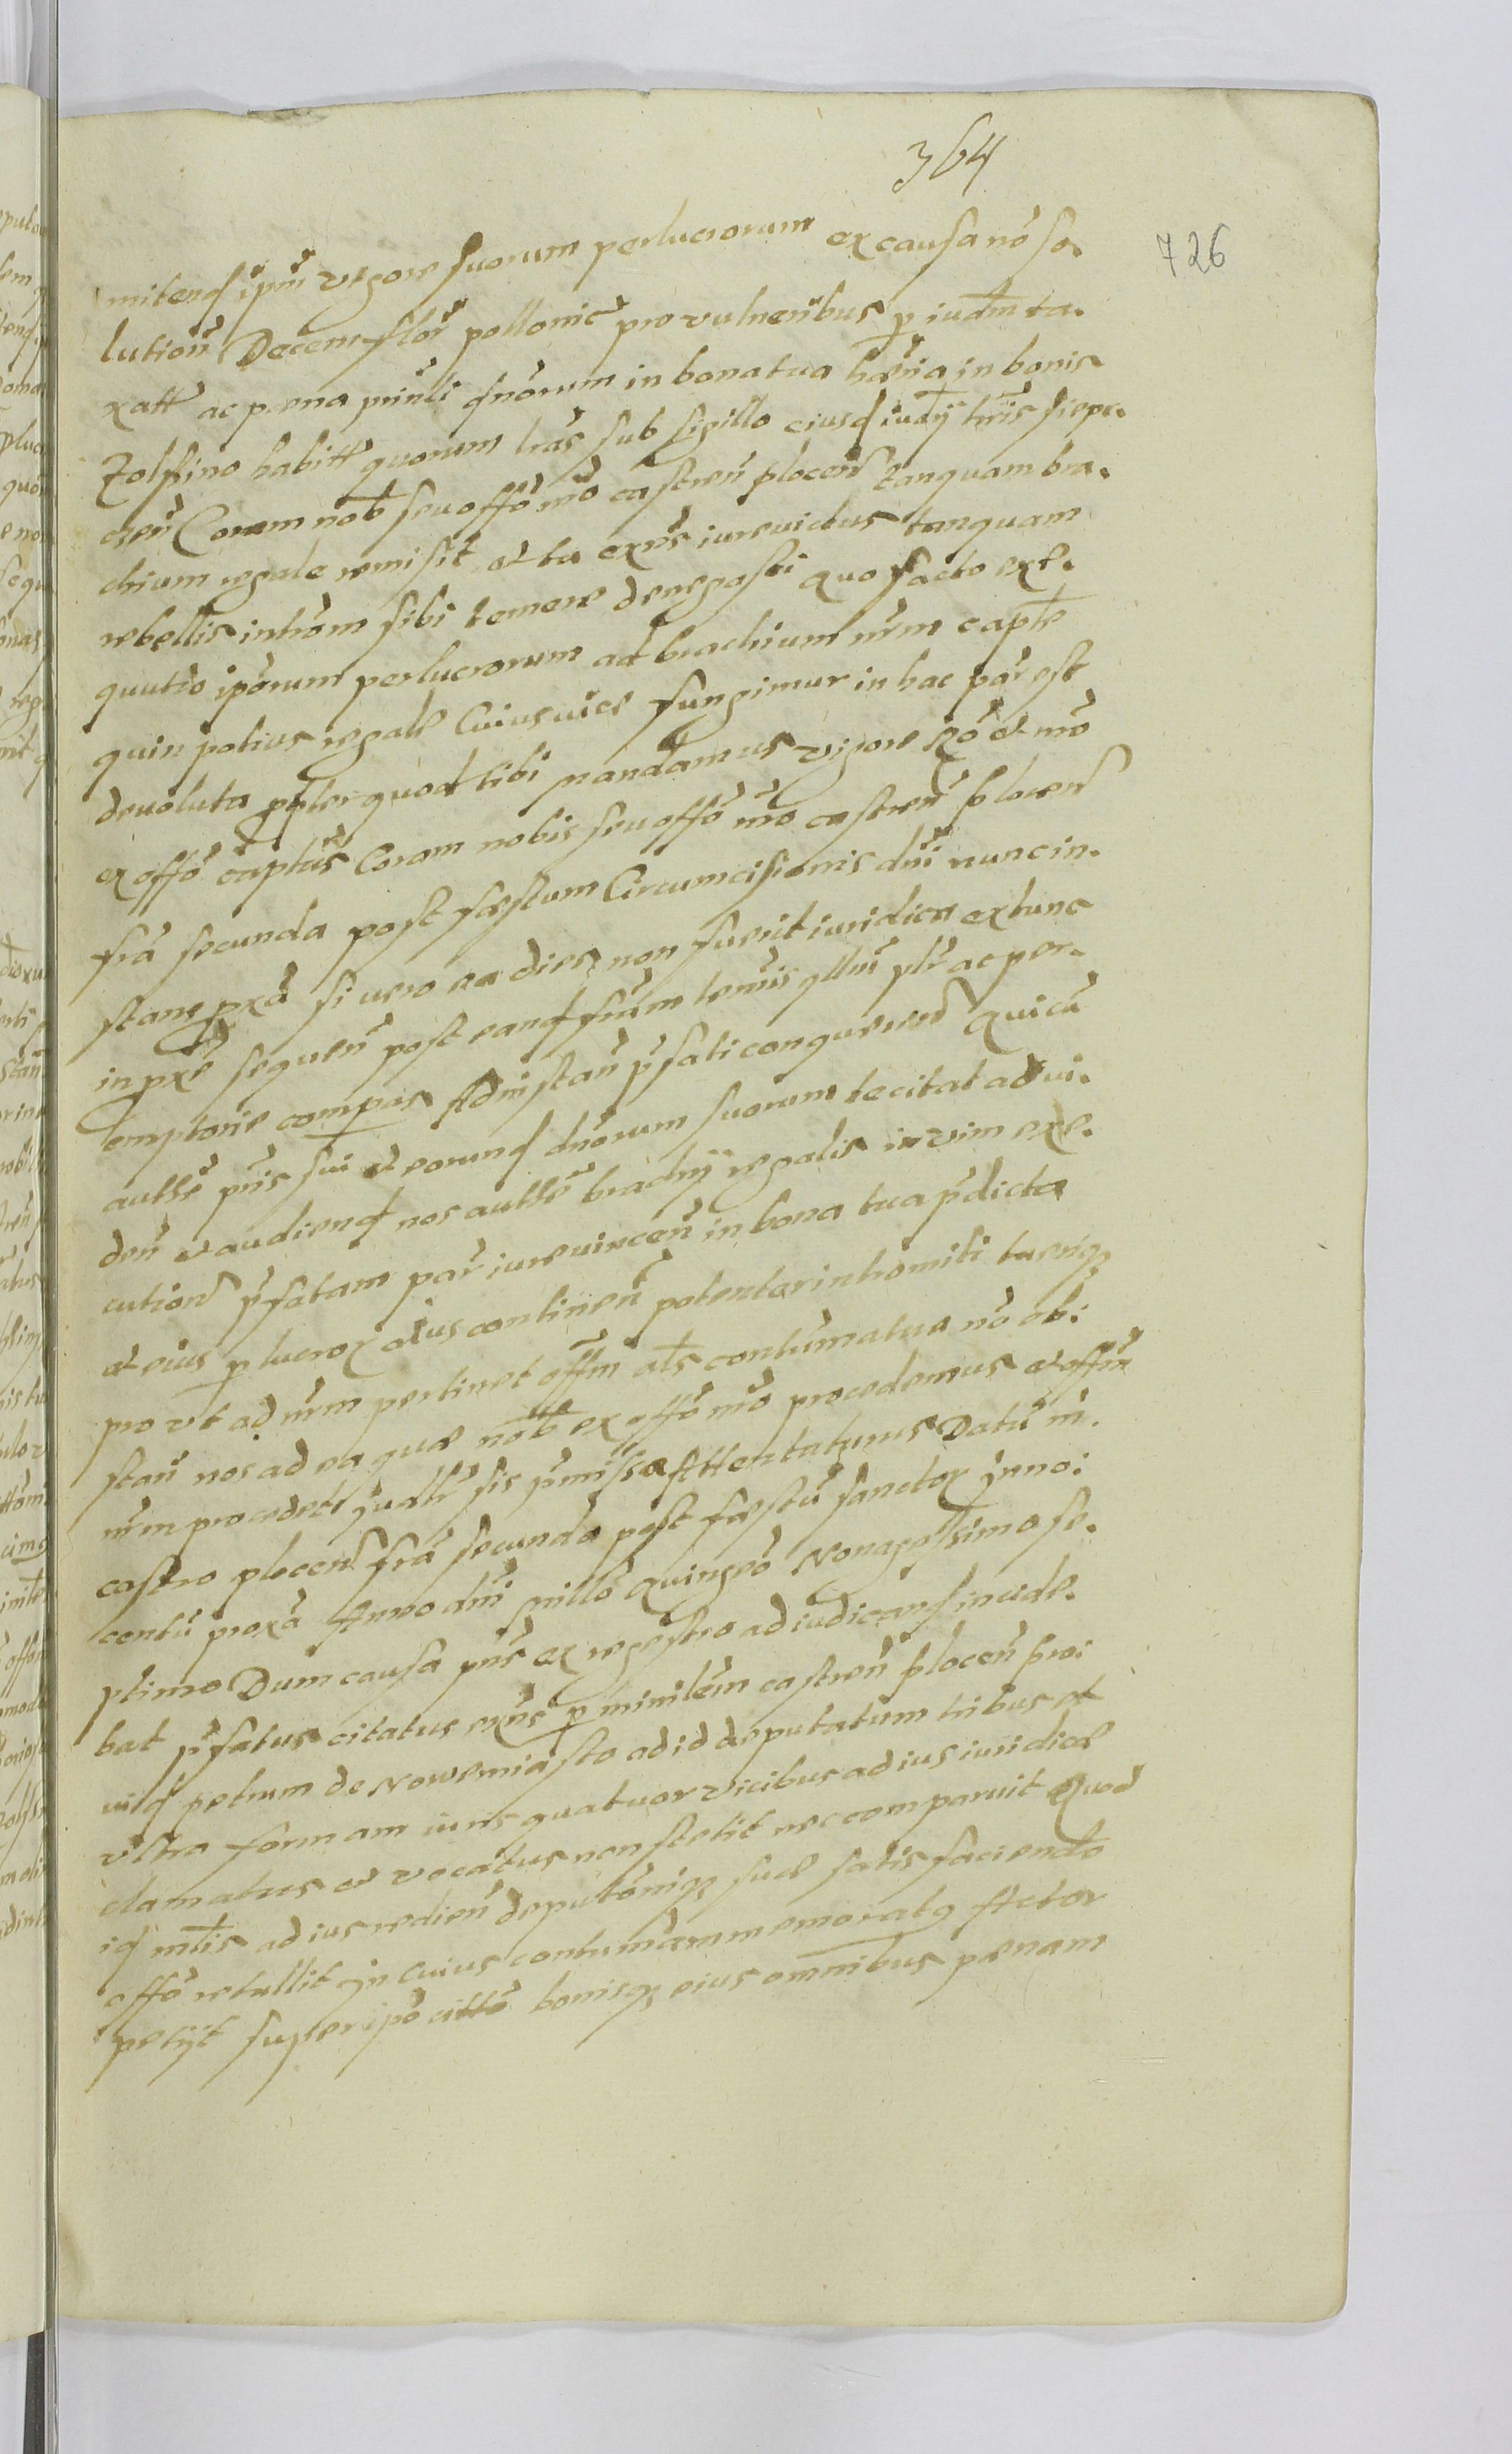 364
726
mitend ipm̄ vigore suorum perlucrorum ex causa nō so-
lutioñ Decem flor̄ pollonic̄ pro vulneribus p iudm̄ ta-
xatt ac pœna primli dnōrum in bona tua hær̄ia in bonis
Zolpino habitt quorum lrās sub sigillo eiusd iudÿ trr̄is siepr-
cen̄ Coram nob seu offō nrō castren̄ plocen̄ tanquam bra-
chium regale remisit et tu exn̄s iurevictus tanquam
rebellis intrōm sibi temere denegasti quo facto exe-
quutio ipōrum perlucrorum ad brachium nrm̄ captle
quin potius regale Cuius uice fungimur in hac par̄ est
devoluta ppter quod tibi mandamus vigore Rō et nrō
ex offō captūs Coram nobis seu offō nrō castren̄ plocen̄
frā secunda post fæstum Circumcisionis dnī nunc in-
stans pxā si uero ea dies non fuerit iuridica extunc
in pxē sequen̄ post eand frīam termīs qlluī pltr̄ ac per-
emptorie compas Ad instan̄ pfati conqueren̄ qui cū
authē pris̄ sui et eorund dnōrum suorum te citat ad vi-
den̄ et audiend nos authē brachÿ regalis in vim exe-
cution̄ pfatam par̄ iurevincen̄ in bona tua pdicta
et eius p lucroꝝ eius continen̄ potenter intromitti tueriqȝ
pro ut ad nrm̄ pertinet offm̄ als contumatia nō ob:
stan̄ nos ad ea quæ nob ex offō nrō procedemus et offm̄
nrm̄ procedet iudltr̄ sis pmissa Attentaturus Datū in
castro plocen̄ frā secunda post fæstū sanctoꝝ Inno:
centū proxā Anno dnī millō Quingeō Nonagessimo se-
ptimo Dum causa pns̄ ex regestro ad iudicand incide-
bat pfatus citatus exn̄s p ministēm castren̄ plocen̄ pro:
uid petrum de Nowemiasto ad id deputatum tribus et
vltra formam iuris quatuor vicibus ad ius iuridicæ
clamatus et vocatus non stetit nec comparuit Quod
id mtis ad ius redien̄ deputōniqȝ suæ satis faciendo
offō retullit In cuius contumām memoratꝯ Actor
petÿt super ipō cittō bonisqȝ eius omnibus pœnam